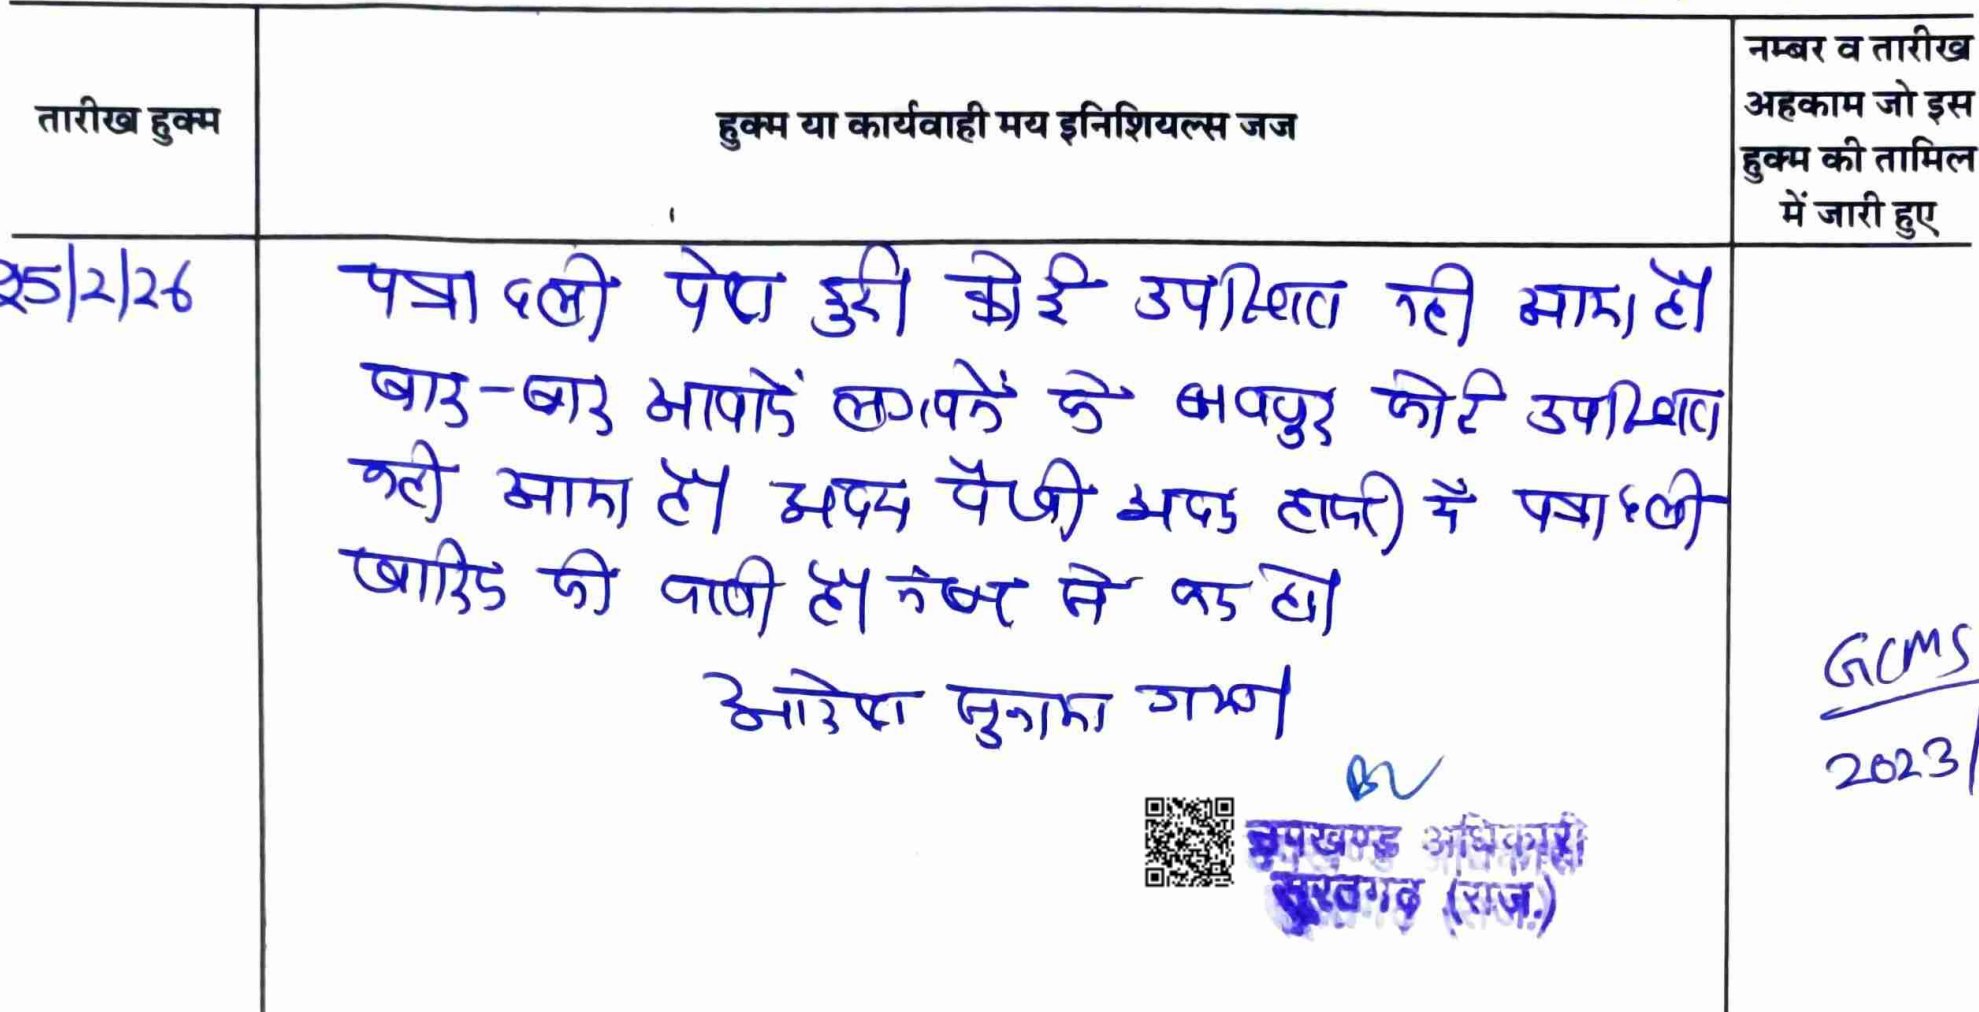 तारीख हुक्म
हुक्म या कार्यवाही मय इनिशियल्स जज
नम्बर व तारीख
अहकाम जो इस
हुक्म की तामिल
में जारी हुए
25/2/26
पत्रावली पेश हुई। कोई उपस्थित नही आया है।
बार-बार आवाजें लगवाने के बावजूद कोई उपस्थित
नही आया है। अदम पैरवी अदम हाजरी में पत्रावली
खारिज की जाती है। नंबर से कम हो।
आदेश सुनाया गया।
उपखण्ड अधिकारी
सूरतगढ (राज.)
GCMS
2023/